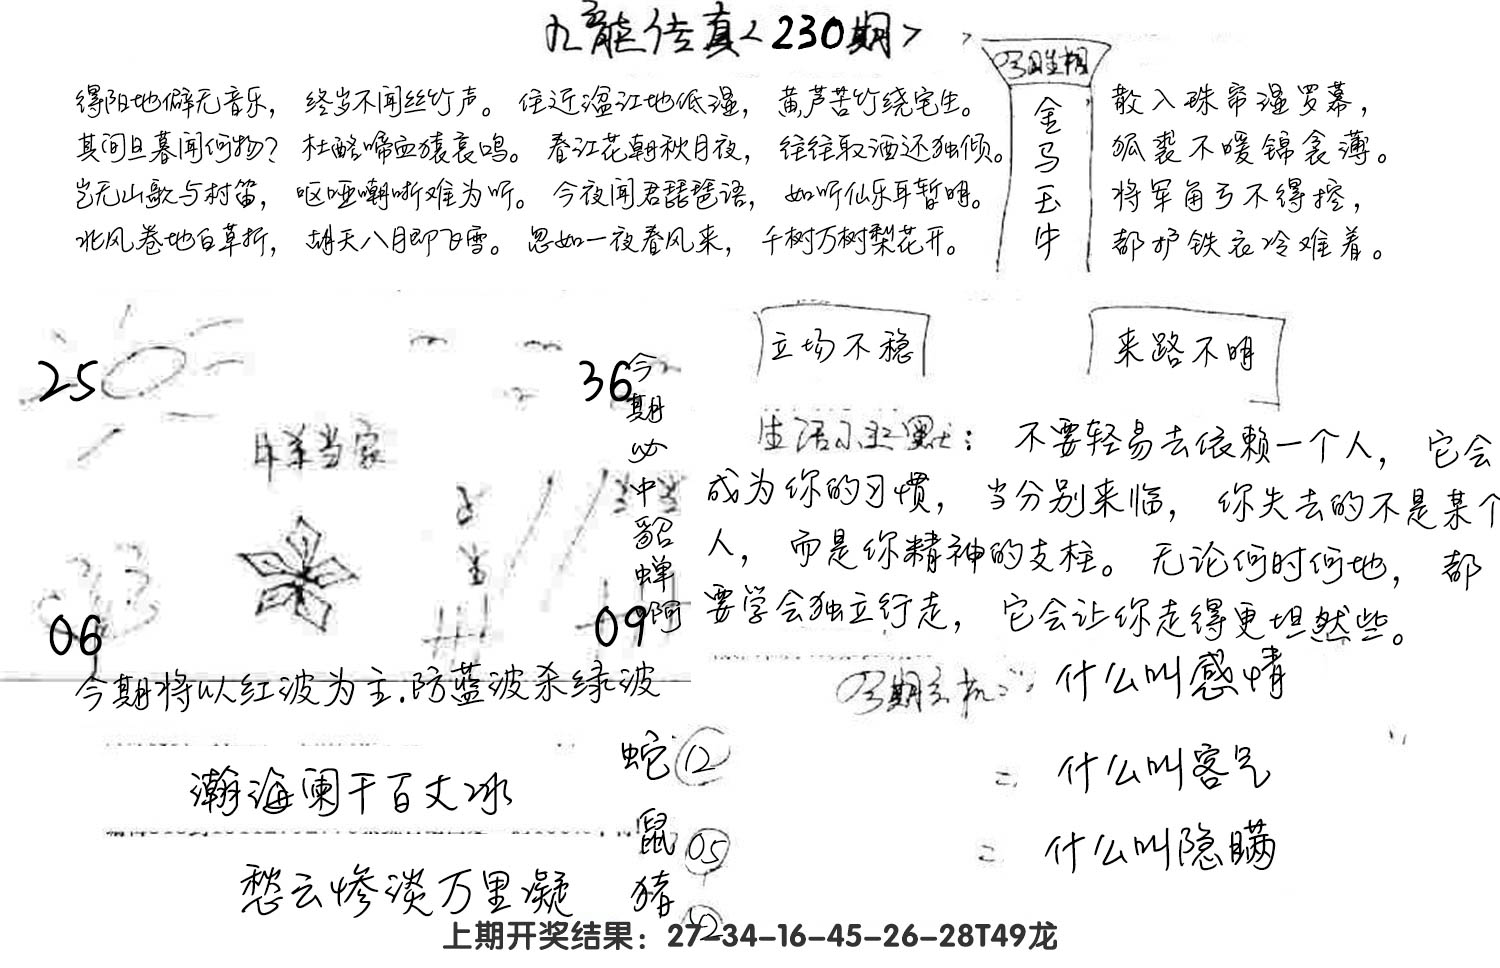 九龍传真<230期>
今期生相
金马玉牛
得阳地僻无音乐，终岁不闻丝竹声。住近湓江地低湿，黄芦苦竹绕宅生。
其间旦暮闻何物？杜鹃啼血猿哀鸣。春江花朝秋月夜，往往取酒还独倾。
岂无山歌与村笛，呕哑嘲哳难为听。今夜闻君琵琶语，如听仙乐耳暂明。
北风卷地白草折，胡天八月即飞雪。忽如一夜春风来，千树万树梨花开。
散入珠帘湿罗幕，
狐裘不暖锦衾薄。
将军角弓不得控，
都护铁衣冷难着。
25
36
今期必中貂蝉阿
06
09
立场不稳
来路不明
不要轻易去依赖一个人，它会
成为你的习惯，当分别来临，你失去的不是某个
人，而是你精神的支柱。无论何时何地，都
要学会独立行走，它会让你走得更坦然些。
今期将以红波为主.防蓝波杀绿波
什么叫感情
什么叫客气
什么叫隐瞒
瀚海阑干百丈冰
愁云惨淡万里凝
蛇 12
鼠 05
猪 42
上期开奖结果：27-34-16-45-26-28T49龙